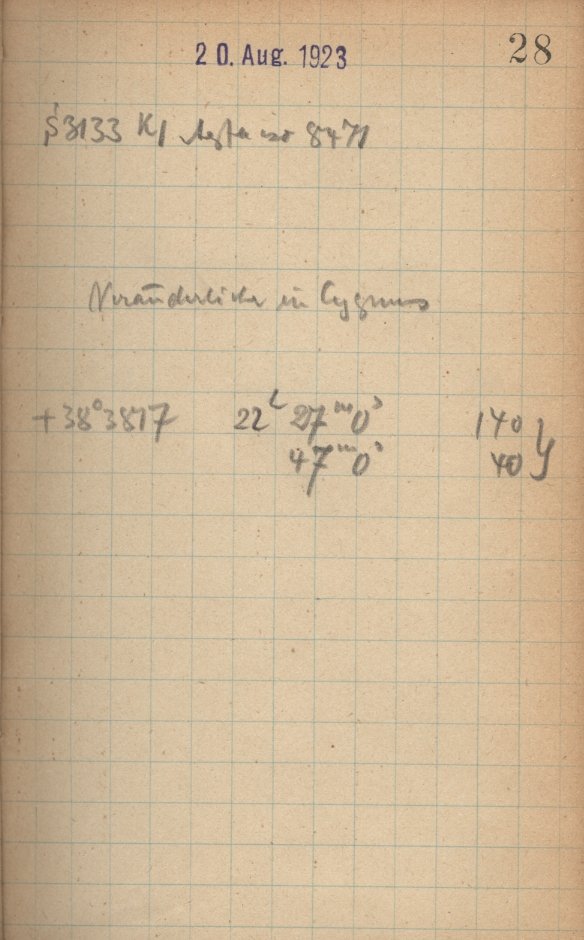 20. Aug. 1923
28
3133 8471
Veränderliche in Cygnus
+38°3817 22ʰ 27ᵐ0ˢ 140 }
47ᵐ0ˢ 40